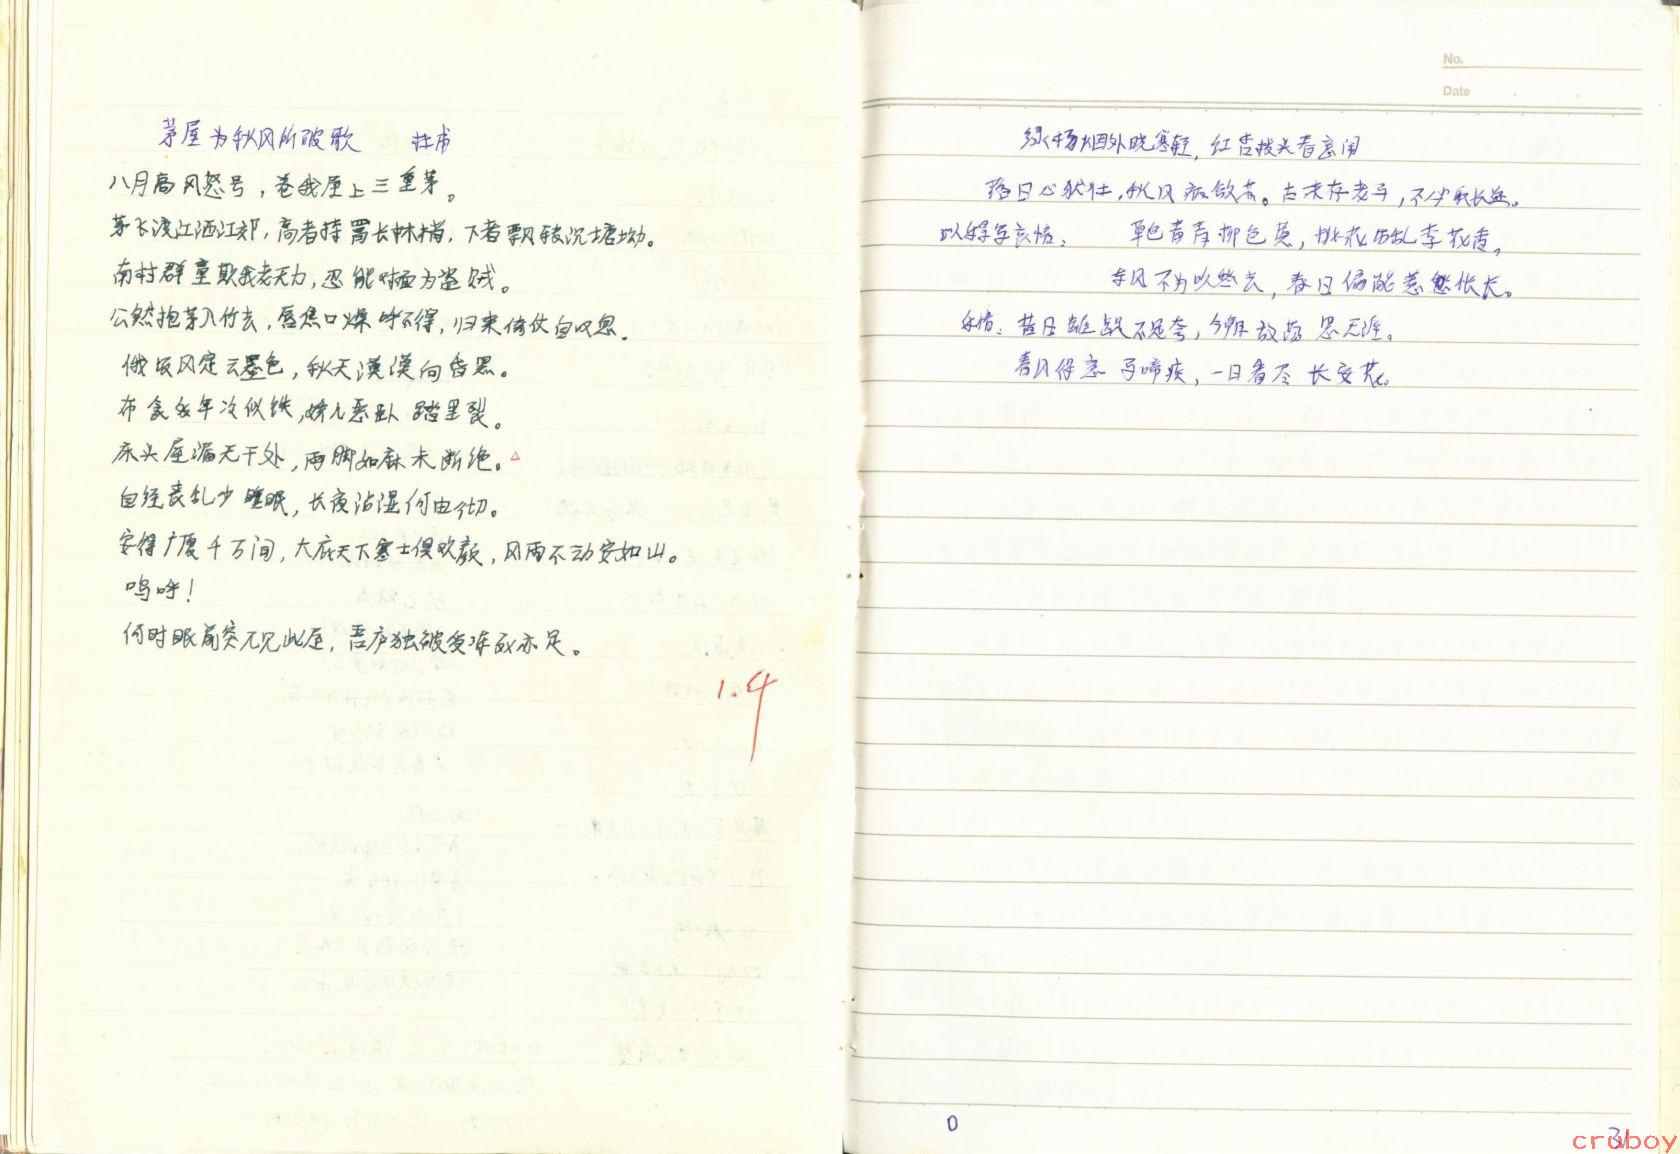 茅屋为秋风所破歌 杜甫
八月高风怒号，卷我屋上三重茅。
茅飞渡江洒江郊，高者挂罥长林梢，下者飘转沉塘坳。
南村群童欺我老无力，忍能对面为盗贼。
公然抱茅入竹去，唇焦口燥呼不得，归来倚仗自叹息。
俄顷风定云墨色，秋天漠漠向昏黑。
布衾多年冷似铁，娇儿恶卧踏里裂。
床头屋漏无干处，雨脚如麻未断绝。
自经丧乱少睡眠，长夜沾湿何由彻。
安得广厦千万间，大庇天下寒士俱欢颜，风雨不动安如山。
呜呼！
何时眼前突兀见此屋，吾庐独破受冻死亦足。
1.4
No.
Date
绿杨烟外晓寒轻，红杏枝头春意闹
落日心犹壮，秋风病欲苏。古来存老马，不必取长途。
以乐写哀情： 草色青青柳色黄，桃花历乱李花香，
东风不为吹愁去，春日偏能惹恨长。
乐情：昔日龌龊不足夸，今朝放荡思无涯。
春风得意马蹄疾，一日看尽长安花。
0
31
cruboy